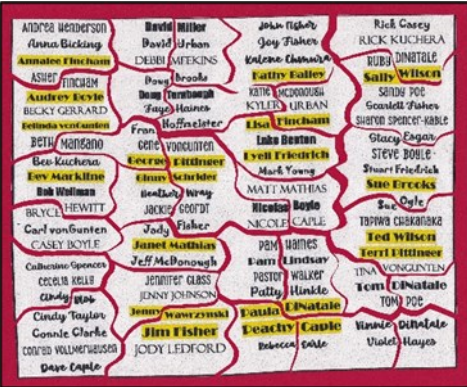 Andrea Henderson
Anna Bicking
Annalee Fincham
Asher Fincham
Audrey Boyle
Becky Gerrard
Belinda vonGunten
Beth Mangano
Bev Kuchera
Bev Markline
Bob Wellman
Bryce Hewitt
Carl vonGunten
Casey Boyle
Catherine Spencer
Cecelia Kelly
Cindy
Cindy Taylor
Connie Clarke
Conrad Vollmerhausen
Dave Caple
David Miller
David Urban
Debbi Meekins
Doug Brooks
Doug Turnbaugh
Faye Haines
Fran Hoffmeister
Gene vonGunten
George Pittinger
Ginny Schrider
Heather Wray
Jackie Geordt
Jady Fisher
Janet Mathias
Jeff McDonough
Jennifer Glass
Jenny Johnson
Jenny Wawrzynski
Jim Fisher
Jody Ledford
John Fisher
Joy Fisher
Kalene Chamura
Kathy Bailey
Katie McDonough
Kyler Urban
Lisa Fincham
Luke Benton
Lyell Friedrich
Mark Young
Matt Mathias
Nicolas Boyle
Nicole Caple
Pam Haines
Pam Lindsay
Pastor Walker
Patty Hinkle
Paula DiNatale
Peachey Caple
Rebecca Earle
Rick Casey
Rick Kuchera
Ruby DiNatale
Sally Wilson
Sandy Poe
Scarlett Fisher
Sharon Spencer-Kable
Stacy Esgar
Steve Boyle
Stuart Friedrich
Sue Brooks
Sue Ogle
Tapiwa Chakanaka
Ted Wilson
Terri Pittinger
Tina vonGunten
Tom DiNatale
Tom Poe
Vinnie DiNatale
Violet Hayes